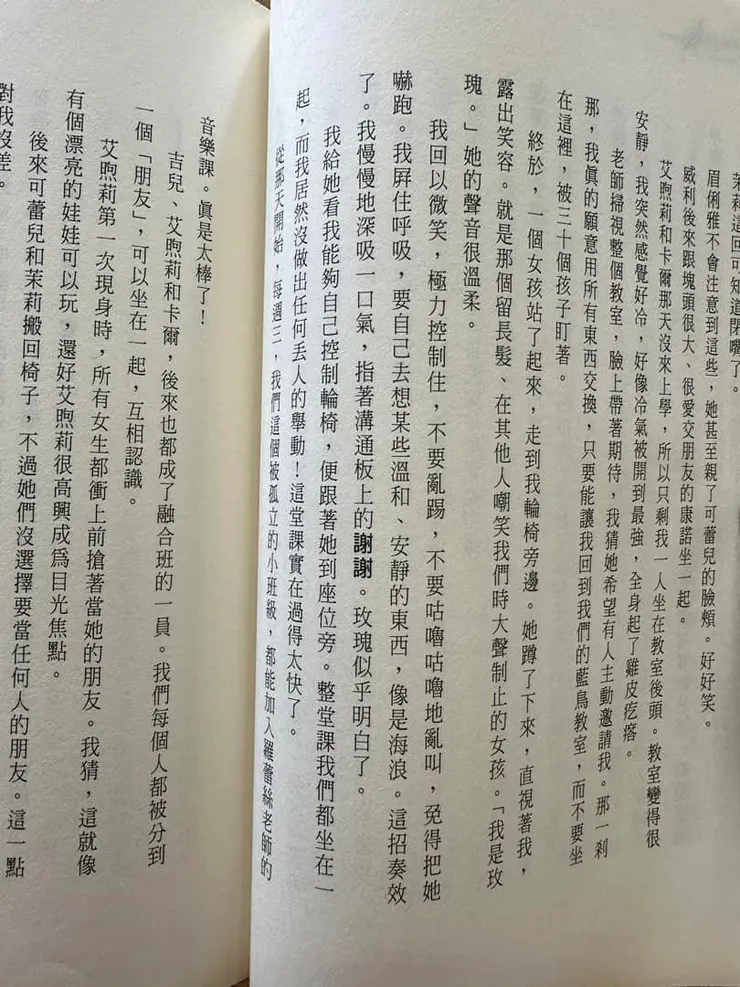 茉莉這回可知道閉嘴了。
眉俐雅不會注意到這些，她甚至親了可蕾兒的臉頰。好好笑。
威利後來跟塊頭很大、很愛交朋友的康諾坐一起。
艾煦莉和卡爾那天沒來上學，所以只剩我一人坐在教室後頭。教室變得很
安靜，我突然感覺好冷，好像冷氣被開到最強，全身起了雞皮疙瘩。
老師掃視整個教室，臉上帶著期待，我猜她希望有人主動邀請我。那一剎
那，我真的願意用所有東西交換，只要能讓我回到我們的藍鳥教室，而不要坐
在這裡，被三十個孩子盯著。
終於，一個女孩站了起來，走到我輪椅旁邊。她蹲了下來，直視著我，
露出笑容。就是那個留長髮、在其他人嘲笑我們時大聲制止的女孩。「我是玫
瑰。」她的聲音很溫柔。
我回以微笑，極力控制住，不要亂踢，不要咕嚕咕嚕地亂叫，免得把她
嚇跑。我屏住呼吸，要自己去想某些溫和、安靜的東西，像是海浪。這招奏效
了。我慢慢地深吸一口氣，指著溝通板上的謝謝。玫瑰似乎明白了。
我給她看我能夠自己控制輪椅，便跟著她到座位旁。整堂課我們都坐在一
起，而我居然沒做出任何丟人的舉動！這堂課實在過得太快了。
從那天開始，每週三，我們這個被孤立的小班級，都能加入羅蕾絲老師的
音樂課。真是太棒了！
吉兒、艾煦莉和卡爾，後來也都成了融合班的一員。我們每個人都被分到
一個「朋友」，可以坐在一起，互相認識。
艾煦莉第一次現身時，所有女生都衝上前搶著當她的朋友。我猜，這就像
有個漂亮的娃娃可以玩，還好艾煦莉很高興成為目光焦點。
後來可蕾兒和茉莉搬回椅子，不過她們沒選擇要當任何人的朋友。這一點
對我沒差。